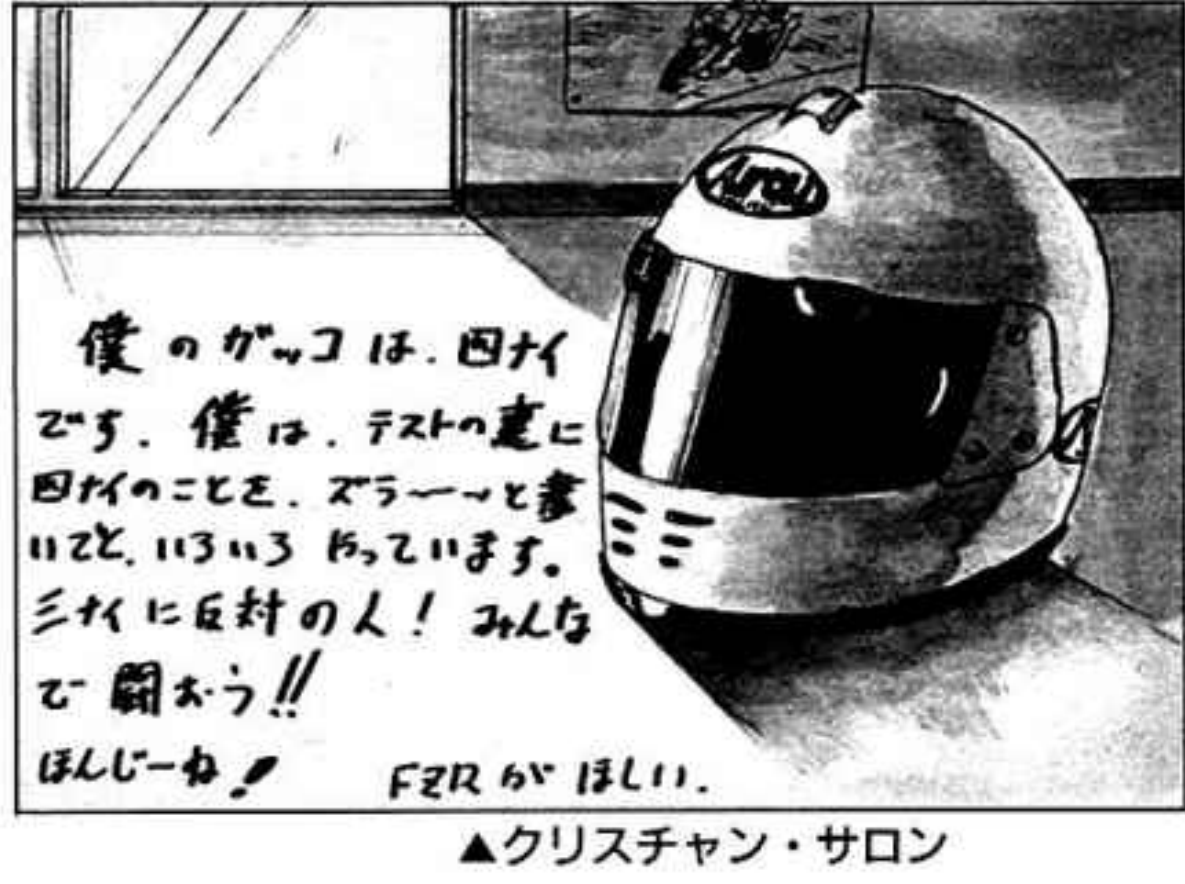 Arai
僕のガッコは.四ナイ
です.僕は.テストの裏に
四ナイのことを.ズラ〜〜っと書
いてと.いろいろやっています。
三ナイに反対の人!みんな
で闘おう!!
ほんじーね!
FZRがほしい.
▲クリスチャン・サロン